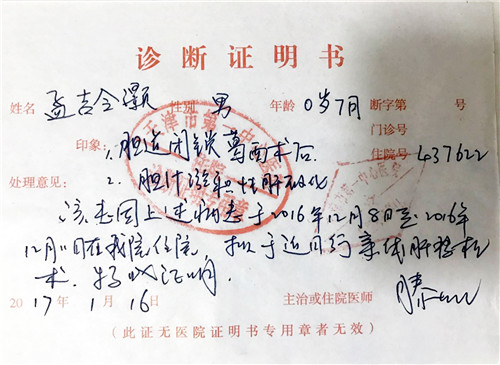 诊断证明书
姓名 孟吉令灏 性别 男 年龄 0岁7月 断字第 号
门诊号
印象: 1.胆道闭锁葛西术后 住院号 437622
处理意见: 2.胆汁淤积性肝硬化
该患因上述病患于2016年12月8日至2016年
12月11日在我院住院,拟于近日行亲体肝移植
术.特此证明.
2017年1月16日 主治或住院医师
(此证无医院证明书专用章者无效)
天津市第一中心医院